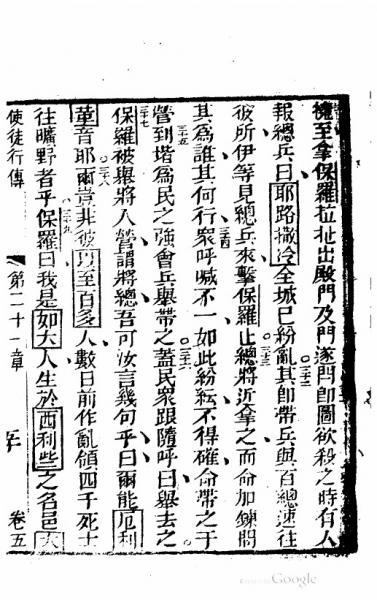 擁至拿保羅拉扯出殿門及門遂閂即圖欲殺之時有人
報總兵曰耶路撒冷全城已紛亂其即帶兵與百總速往
彼所伊等見總兵來擊保羅止總將近拿之而命加鍊問
其為誰其何行衆呼喊不一如此紛紜不得確命帶之于
營到塔為民之強會兵舉帶之蓋民衆跟隨呼曰舉去之
保羅被舉將入營謂將總吾可汝言幾句乎曰爾能厄利
革音耶爾豈非彼以至百多人數日前作亂領四千死士
往曠野者乎保羅曰我是如大人生於西利些之名邑大
使徒行傳 第二十一章 卷五
三十一
三十二
三十三
三十四
三十五
三十六
三十七
三十八
三十九
Google